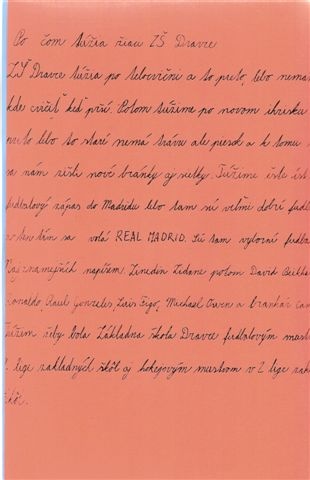 Po čom túžia žiaci ZŠ Dravce
ZŠ Dravce túžia po telocvični a to preto, lebo nema
kde cvičiť keď prší. Potom túžime po novom ihrisku
preto lebo to staré nemá trávu ale piesok a k tomu
sa nám zišli nové bránky aj sieťky. Túžime ešte ísť
futbalový zápas do Madridu lebo tam sú veľmi dobrí futb
ten tím sa volá REAL MADRID. Sú tam výborní futba
Najznamejších napíšem. Zinedin Zidane potom David Beckha
Ronaldo Raul Gonzeles, Luis Figo, Michael Owen a brankár Cas
Túžim žeby bola Základna škola Dravce futbalovým must
lige zakladných škôl aj hokejovým mustrom v 2 lige zak
škôl.